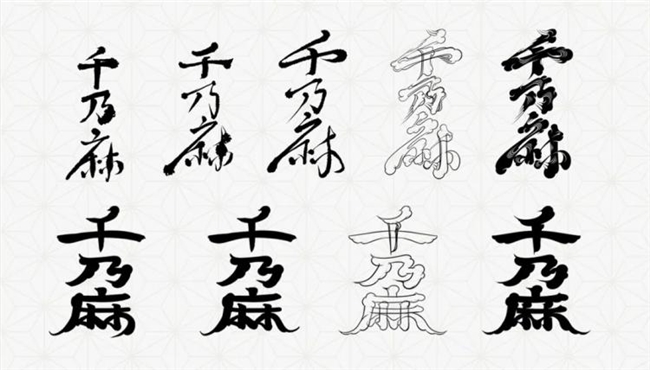 千乃麻
千乃麻
千乃麻
千乃麻
千乃麻
千乃麻
千乃麻
千乃麻
千乃麻